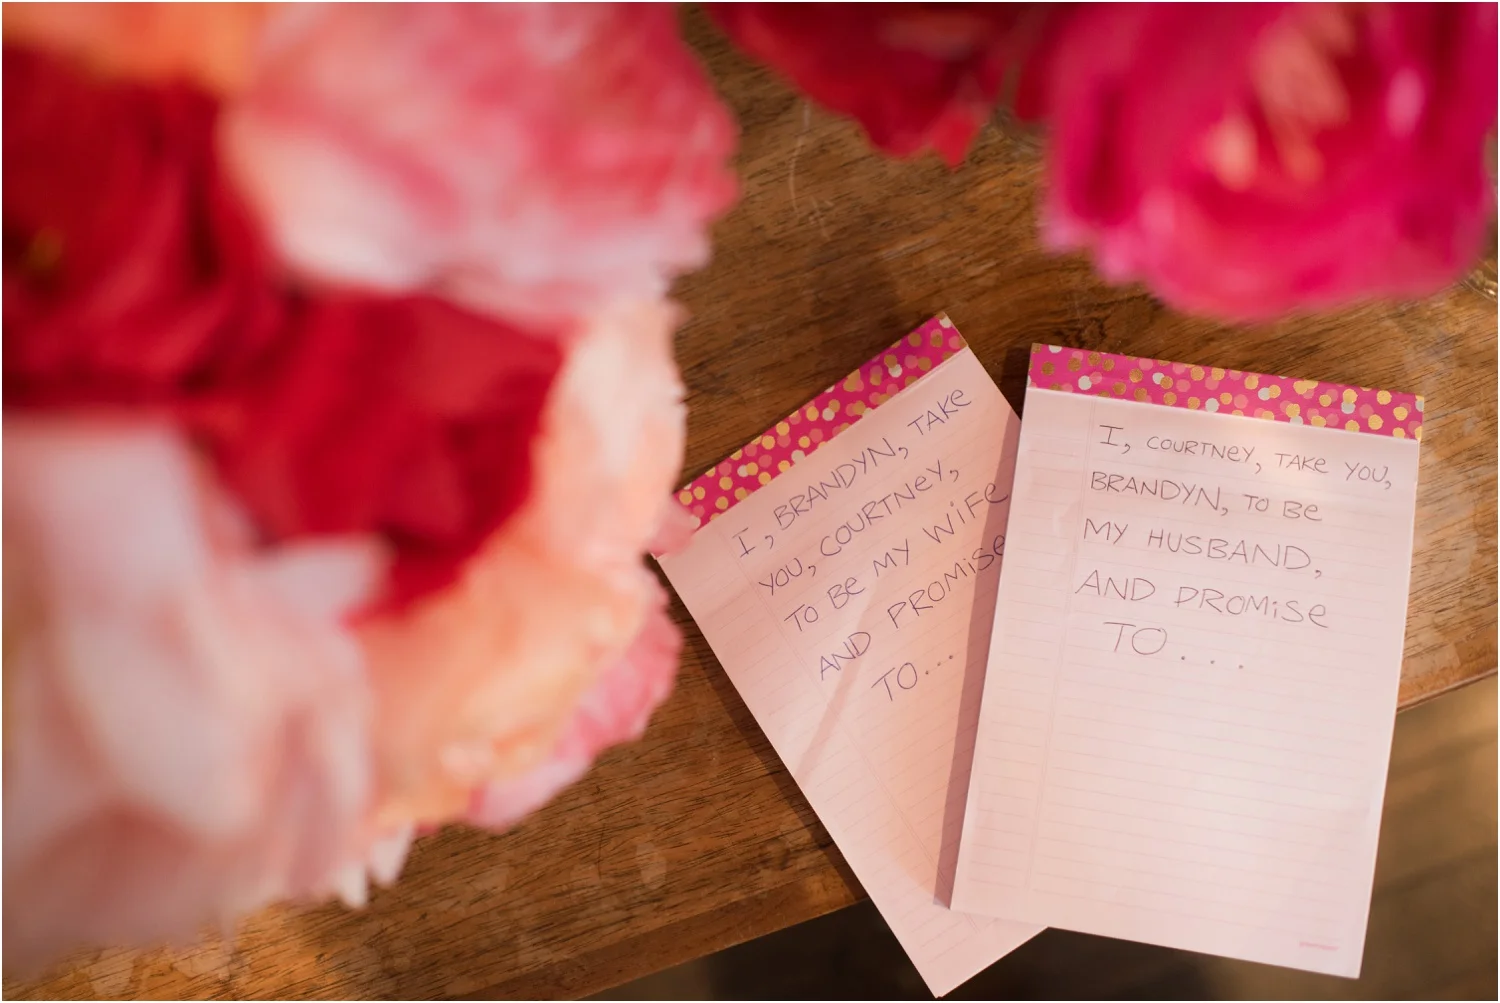 I, BRANDYN, TAKE
YOU, COURTNEY,
TO BE MY WIFE
AND PROMISE
TO...
I, COURTNEY, TAKE YOU,
BRANDYN, TO BE
MY HUSBAND,
AND PROMISE
TO...